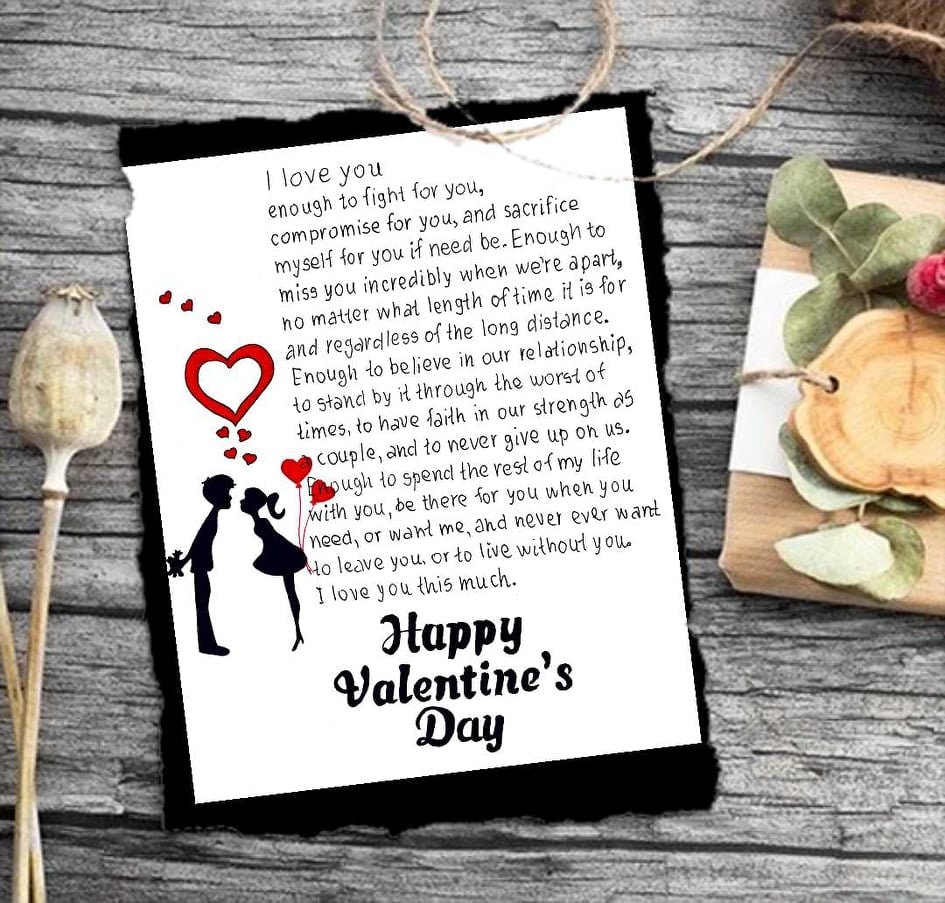 I love you
enough to fight for you,
compromise for you, and sacrifice
myself for you if need be. Enough to
miss you incredibly when we're apart,
no matter what length of time it is for
and regardless of the long distance.
Enough to believe in our relationship,
to stand by it through the worst of
times, to have faith in our strength as
a couple, and to never give up on us.
Enough to spend the rest of my life
with you, be there for you when you
need, or want me, and never ever want
to leave you. or to live without you.
I love you this much.
Happy
Valentine's
Day